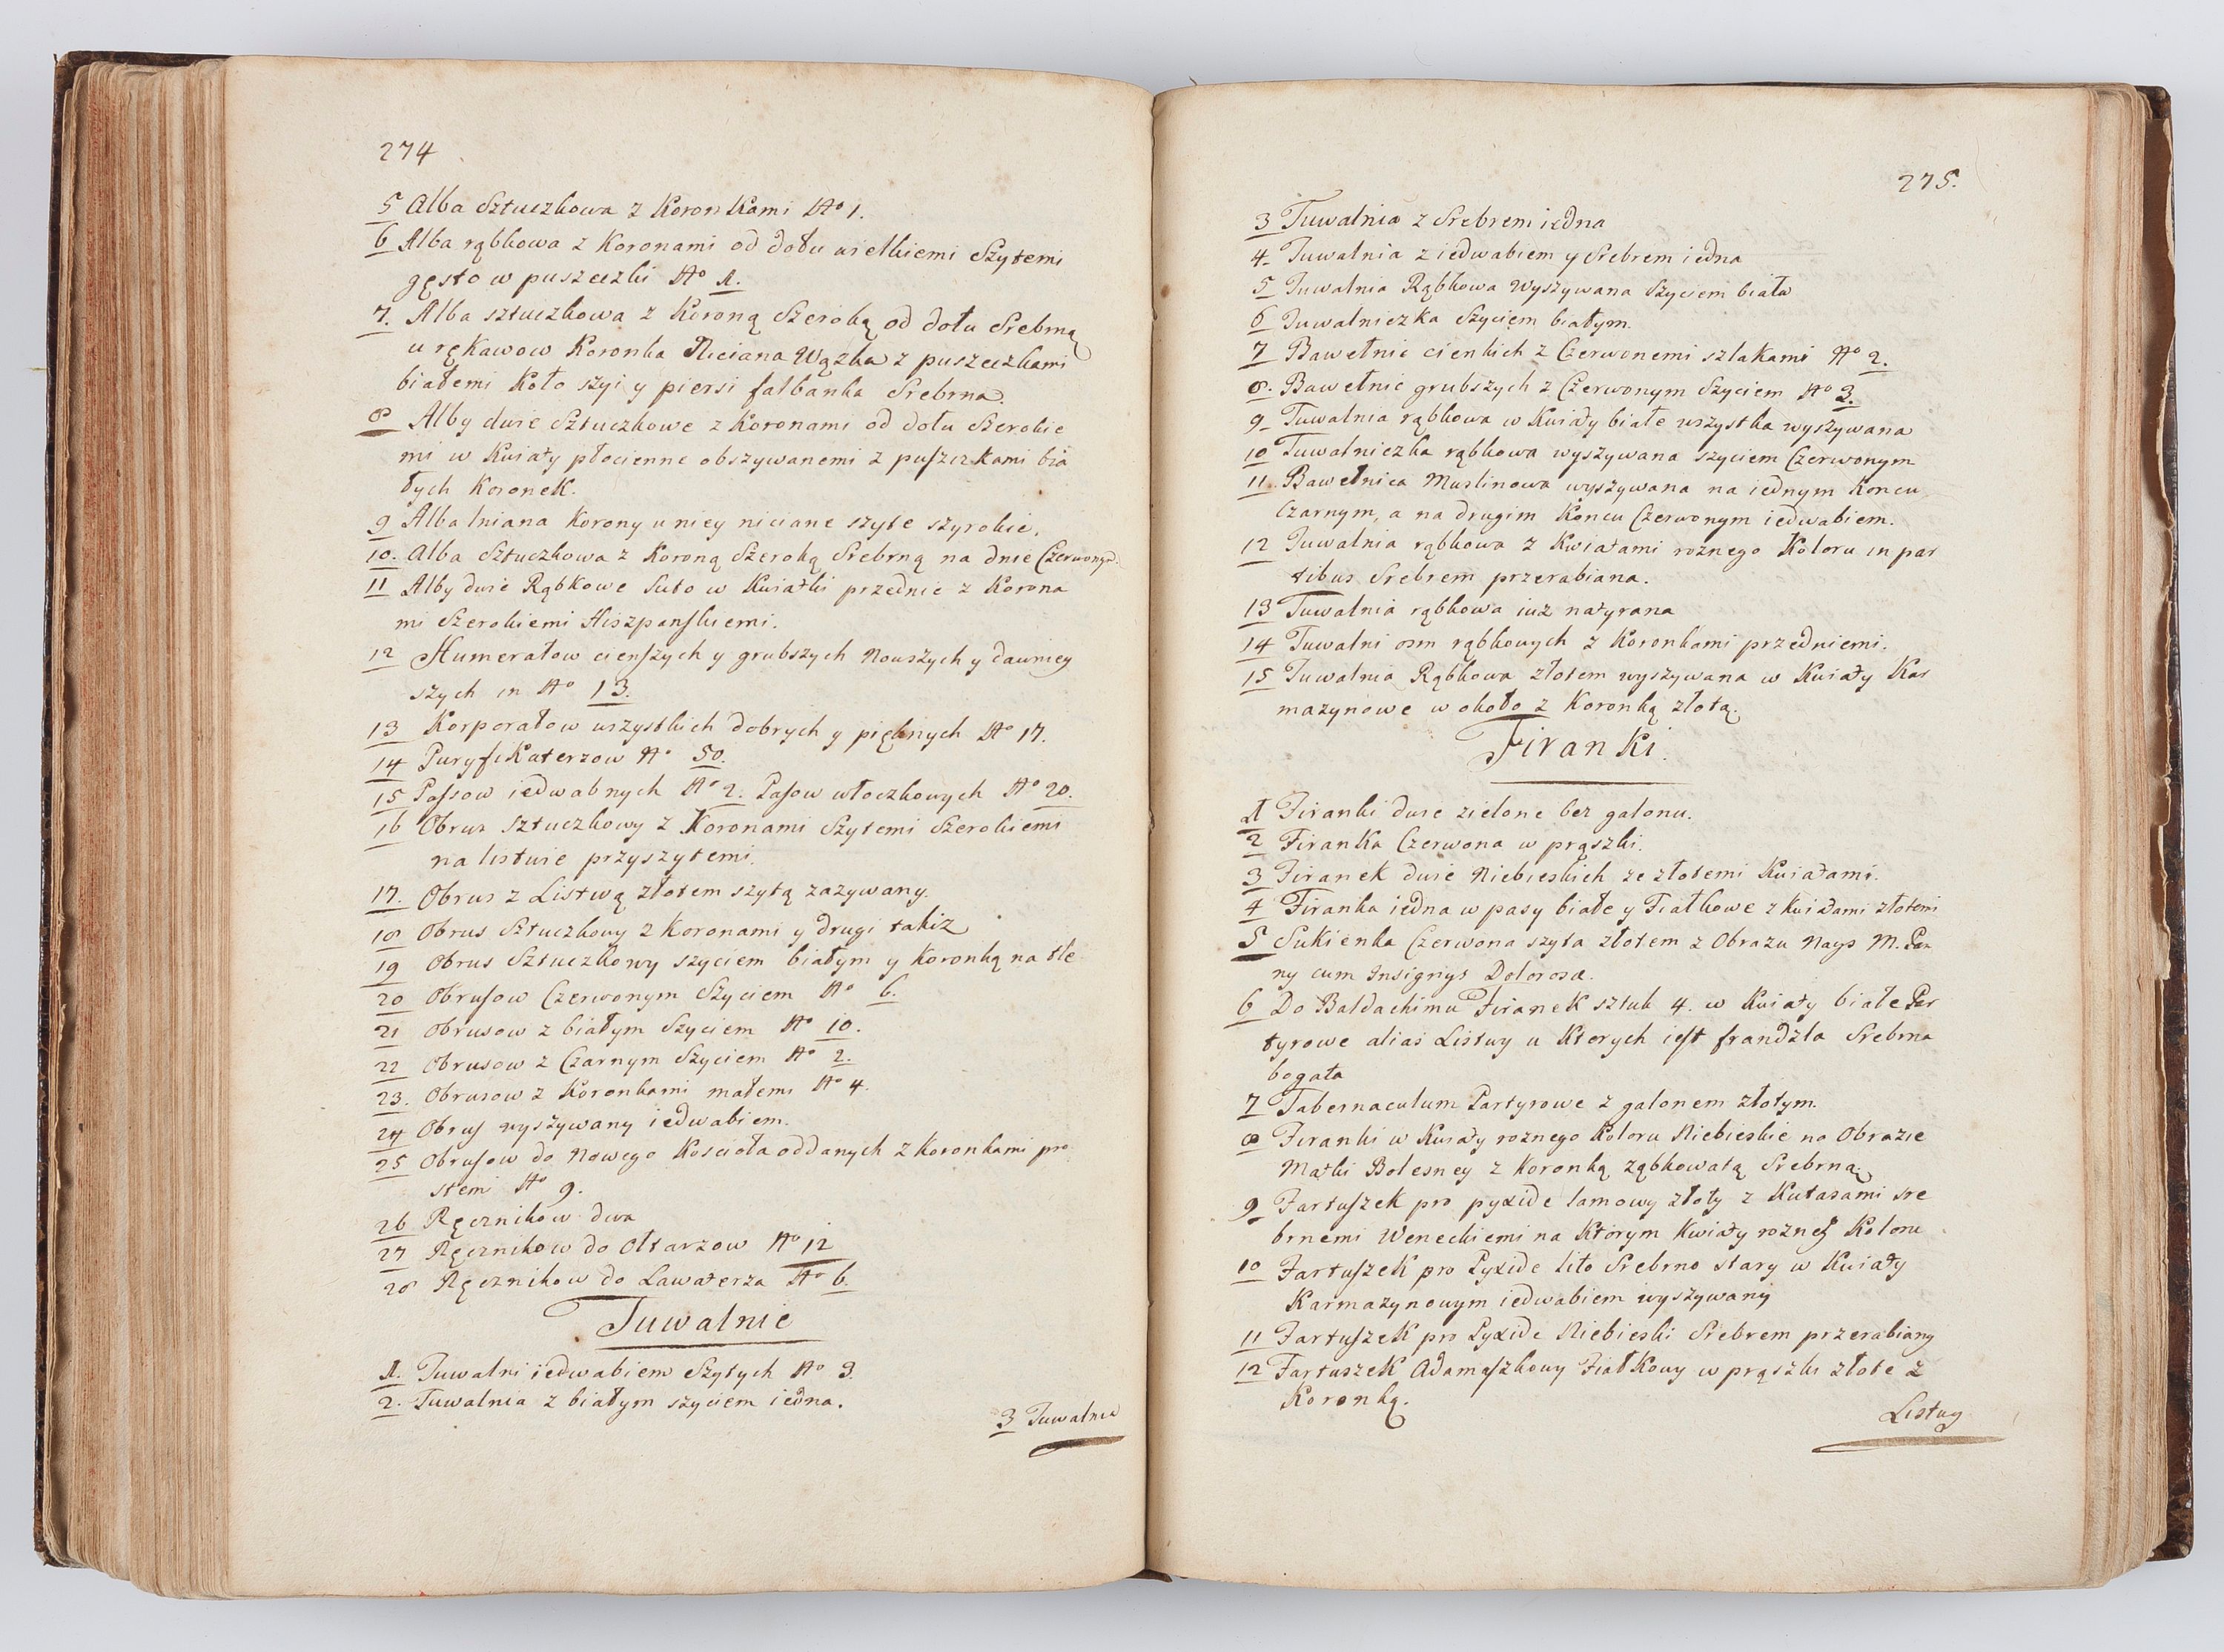 274
5 Alba Sztuczkowa z Koronkami No 1.
6 Alba rąbkowa z Koronami od dołu wielkiemi Szytemi
gęsto w puszeczki No 1.
7. Alba sztuczkowa z Koroną Szeroką od dołu Srebrną
u rękawow Koronka Niciana Wązka z puszeczkami
białemi Koło szyi y piersi falbanka Srebrna.
8 Alby dwie Sztuczkowe z Koronami od dołu Szerokie
mi w Kwiaty płocienne obszywanemi z puszczkami bia
łych Koronek.
9 Alba lniana Korony u niey niciane szyte szyrokie.
10. Alba Sztuczkowa z Koroną Szeroką Srebrną na dnie Czerwonym.
11 Alby dwie Rąbkowe Suto w Kwiatki przednie z Korona
mi Szerokiemi Hiszpanskiemi.
12 Humerałow cienszych y grubszych Nowszych y dawniey
szych in No 13.
13 Korporałow wszystkich dobrych y pięknych No 17.
14 Puryfikaterzow No 50.
15 Passow iedwabnych No 2. Pasow włoczkowych No 20.
16 Obrus Sztuczkowy z Koronami Szytemi Szerokiemi
na listwie przyszytemi.
17. Obrus z Listwą złotem szytą zazywany.
18 Obrus Sztuczkowy z Koronami y drugi takiz
19 Obrus Sztuczkowy szyciem białym y Koronką na tle
20 Obrusow Czerwonym Szyciem No 6.
21 Obrusow z białym Szyciem No 10.
22 Obrusow z Czarnym Szyciem No 2.
23. Obrusow z Koronkami małemi No 4.
24 Obrus wyszywany iedwabiem.
25 Obrusow do Nowego Koscioła oddanych z Koronkami pro
stemi No 9.
26 Ręcznikow dwa
27 Ręcznikow do Ołtarzow No 12
28 Ręcznikow do Lawaterza No 6.
Tuwalnie
1. Tuwalni iedwabiem Szytych No 3.
2. Tuwalnia z białym szyciem iedna.
3 Tuwalnia
275.
3 Tuwalnia z Srebrem iedna
4. Tuwalnia z iedwabiem y Srebrem iedna
5 Tuwalnia Rąbkowa Wyszywana Szyciem biała
6 Tuwalniczka Szyciem białym.
7 Bawełnic cienkich z Czerwonemi szlakami No 2.
8. Bawełnic grubszych z Czerwonym Szyciem No 3.
9 Tuwalnia rąbkowa w Kwiaty białe wszystka wyszywana
10 Tuwalniczka rąbkowa wyszywana szyciem Czerwonym
11. Bawełnica Muslinowa wyszywana na iednym Koncu
Czarnym, a na drugim Koncu Czerwonym iedwabiem.
12 Tuwalnia rąbkowa z Kwiatami roznego Koloru in par
tibus Srebrem przerabiana.
13 Tuwalnia rąbkowa iuz natyrana
14 Tuwalni osm rąbkowych z Koronkami przedniemi.
15 Tuwalnia Rąbkowa złotem wyszywana w Kwiaty Kar
mazynowe w około z Koronką złotą.
Firanki.
1 Firanki dwie zielone bez galonu.
2 Firanka Czerwona w prąszki.
3 Firanek dwie Niebieskich ze złotemi Kwiatami.
4 Firanka iedna w pasy białe y Fiałkowe z Kwiatami złotemi
5 Sukienka Czerwona szyta złotem z Obrazu Nays M. Pan
ny cum Insignys Dolorosæ.
6 Do Baldachimu Firanek sztuk 4. w Kwiaty białe Par
tyrowe alias Listwy u Ktorych iest frandzla Srebrna
bogata
7 Tabernaculum Partyrowe z galonem złotym.
8 Firanki w Kwiaty roznego Koloru Niebieskie na Obrazie
Matki Bolesney z Koronką ząbkowatą Srebrną.
9 Fartuszek pro pyxide lamowy złoty z Kutasami sre
brnemi Weneckiemi na Ktorym Kwiaty rozneg Koloru
10 Fartuszek pro Pyxide lito Srebrno stary w Kwiaty
Karmazynowym iedwabiem wyszywany
11 Fartuszek pro Pyxide Niebieski Srebrem przerabiany
12 Fartuszek Adamaszkowy Fiałkowy w prąszki złote z
Koronką.
Listwy